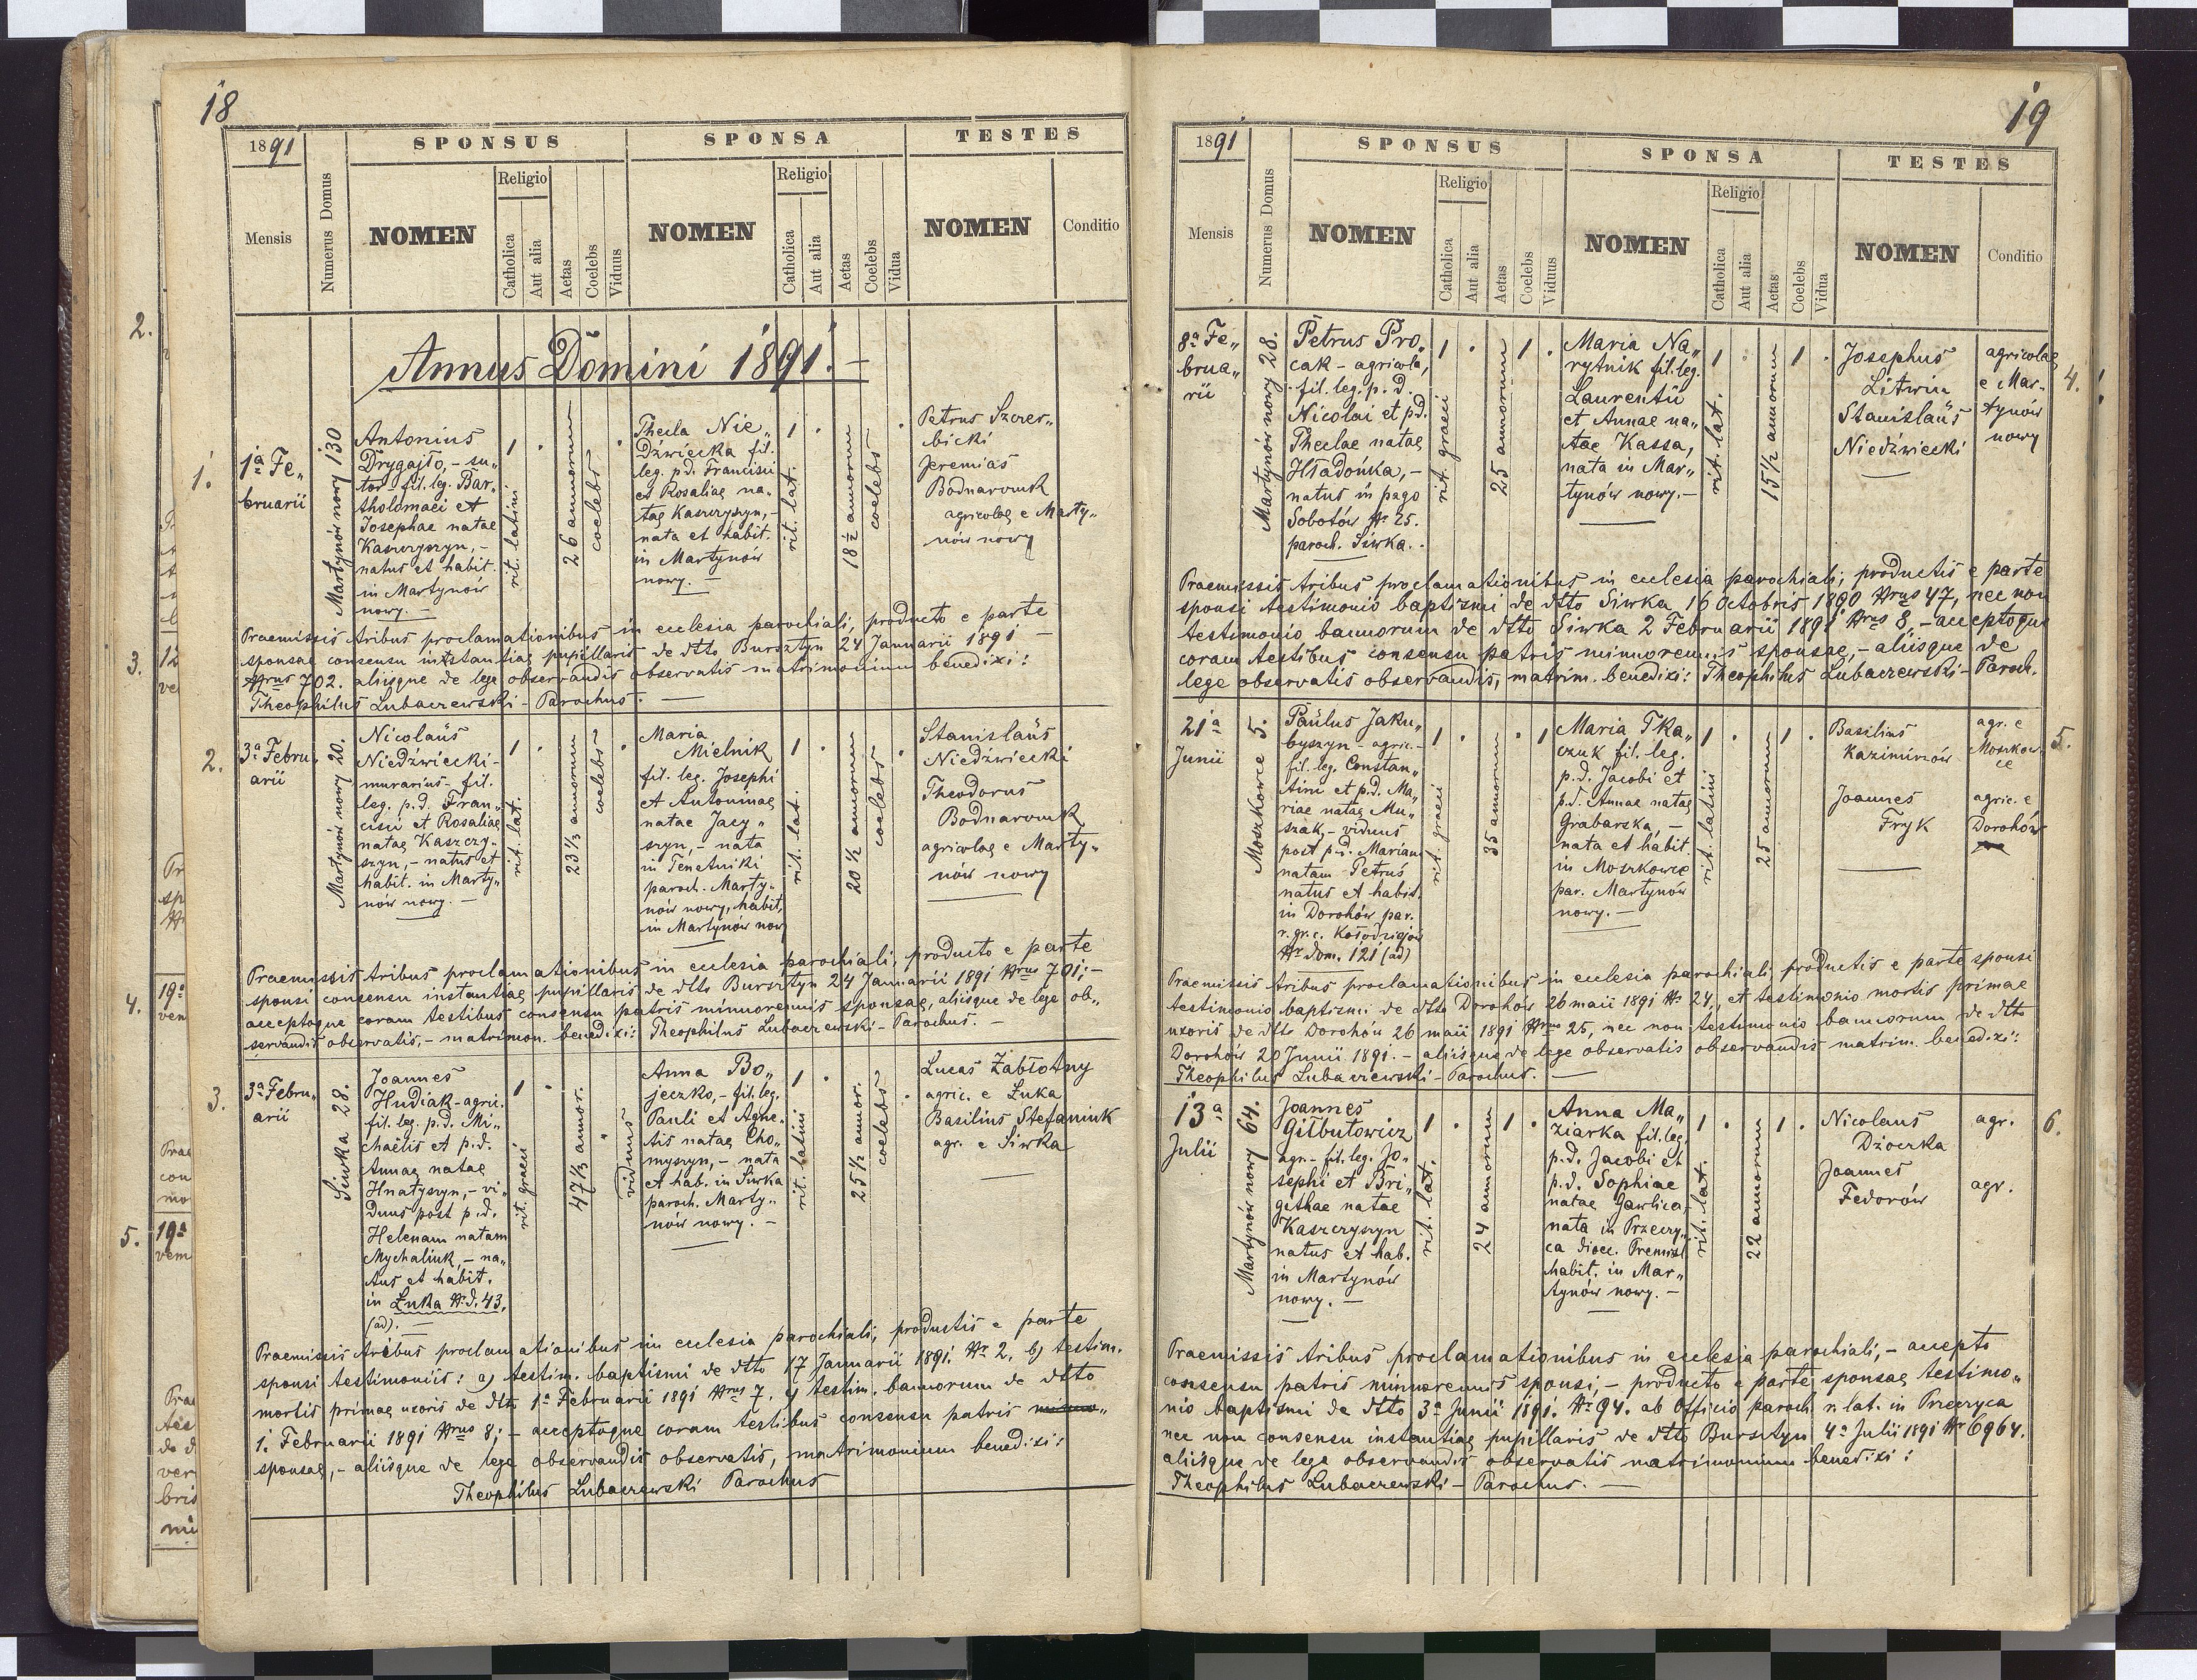 18
1891
SPONSUS
SPONSA
TESTES
Mensis
Numerus Domus
NOMEN
Religio
Catholica
Aut alia
Aetas
Coelebs
Viduus
NOMEN
Religio
Catholica
Aut alia
Aetas
Coelebs
Vidua
NOMEN
Conditio
Annus Domini 1891. –
1.
1ª Fe„
bruarii
Martynów nowy 130
Antonius
Drygajło, – su„
tor – fil. leg. Bar„
tholomaei et
Josephae natae
Kaszczyszyn, –
natus et habit.
in Martynów
nowy. –
1
rit. latini
26 annorum
coelebs
Thecla Nie„
dźwiecka fil.
leg. p.d. Francisci
et Rosaliae na„
tae Kaszczyszyn, –
nata et habit.
in Martynów
nowy. –
1
rit. lat.
18½ annorum
coelebs
Petrus Szczer„
bicki
Jeremias
Bodnarczuk
agricolae e Marty„
nów nowy
Praemissis tribus proclamationibus in ecclesia parochiali, producto e parte
sponsae consensu instantiae pupillaris de dtto Bursztyn 24 Januarii 1891 –
Nrus 702. aliisque de lege observandis observatis matrimonium benedixi:
Theophilus Lubaczewski – Parochus. –
2.
3ª Febru„
arii
Martynów nowy 20.
Nicolaüs
Niedźwiecki –
murarius – fil.
leg. p.d. Fran„
cisci et Rosaliae
natae Kaszczy„
szyn, – natus et
habit. in Marty„
nów nowy. –
1
rit. lat.
23⅓ annorum
coelebs
Maria
Mielnik
fil. leg. Josephi
et Antoninae
natae Jacy„
szyn, – nata
in Tenetniki
paroch. Marty„
nów nowy, habit,
in Martynów now
1
rit. lat.
20½ annorum
coelebs
Stanislaüs
Niedźwiecki
Theodorus
Bodnarczuk
agricolae e Marty„
nów nowy
Praemissis tribus proclamationibus in ecclesia parochiali, producto e parte
sponsi consensu instantiae pupillaris de dtto Bursztyn 24 Januarii 1891 Nrus 701; –
acceptoque coram testibus consensu patris minorennis sponsae, aliisque de lege ob„
servandis observatis, – matrimon. benedixi: Theophilus Lubaczewski – Parochus. –
3.
3ª Febru„
arii
Siwka 28.
Joannes
Hudiak – agric.
fil. leg. p.d. Mi„
chaëlis et p.d.
Annae natae
Hnatyszyn, – vi„
duus post p.d.
Helenam natam
Mychaliuk, – na„
tus et habit.
in Łuka Nr. d. 43,
(ad). –
1
rit. graeci
47⅓ annor.
viduus
Anna Bo„
jeczko, – fil. leg.
Pauli et Agne„
tis natae Cho„
myszyn, – nata
et hab. in Siwka
paroch. Marty„
nów nowy. –
1
rit. latini
25½ annor.
coelebs
Lucas Zabłotny
agric. e Łuka
Basilius Stefaniuk
agr. e Siwka
Praemissis tribus proclamationibus in ecclesia parochiali, productis e parte
sponsi testimoniis: a) testim. baptismi de dtto 17 Januarii 1891. Nr 2. b) testim.
mortis primae uxoris de dtto 1ª Februarii 1891 Nrus 7. c) testim. bannorum de dtto
1. Februarii 1891 Nrus 8; – acceptoque coram testibus consensu patris
sponsae, – aliisque de lege observandis observatis, matrimonium benedixi:
Theophilus Lubaczewski Parochus
19
1891
SPONSUS
SPONSA
TESTES
Mensis
Numerus Domus
NOMEN
Religio
Catholica
Aut alia
Aetas
Coelebs
Viduus
NOMEN
Religio
Catholica
Aut alia
Aetas
Coelebs
Vidua
NOMEN
Conditio
8ª Fe„
brua„
rii
Martynów nowy 28.
Petrus Pro„
cak – agricola,
fil. leg. p.d.
Nicolai et p.d.
Theclae natae
Hładońka, –
natus in pago
Sobotów Nr 25.
paroch. Siwka. –
1
rit. graeci
25 annorum
1
Maria Na„
rytnik fil. leg.
Laurentii
et Annae na„
tae Kassa,
nata in Mar„
tynów nowy. –
1
rit. lat.
15½ annorum
1
Josephus
Litwin
Stanislaüs
Niedźwiecki
agricolae
e Mar„
tynów
nowy
4.
Praemissis tribus proclamationibus in ecclesia parochiali; productis e parte
sponsi testimonio baptismi de dtto Siwka 16 Octobris 1890 Nrus 47, nec non
testimonio bannorum de dtto Siwka 2 Februarii 1891 Nrus 8, – acceptoque
coram testibus consensu patris minorennis sponsae, – aliisque de
lege observatis observandis, matrim. benedixi: Theophilus Lubaczewski – Paroch.
21ª
Junii
Moszkowce 5.
Paülus Jaku„
byszyn – agric. –
fil. leg. Constan„
tini et p.d. Ma„
riae natae Mu„
szak, – viduus
post p.d. Mariam
natam Petruś
natus et habit.
in Dorohów par.
r. gr. c. Kołodziejów
Nr dom. 121 (ad)
1
rit. graeci
35 annorum
1
Maria Tka„
czuk fil. leg.
p.d. Jacobi et
p.d. Annae natae
Grabarska, –
nata et habit.
in Moszkowce
par. Martynów
nowy. –
1
rit. latini
25 annorum
1
Basilius
Kazimirów
Joannes
Fryk
agr. e
Moszkow
ce
agric. e
Dorohów
5.
Praemissis tribus proclamationibus in ecclesia parochiali productis e parte sponsi
testimonio baptismi de dtto Dorohów 26 maii 1891 Nr 24, et testimonio mortis primae
uxoris de dtto Dorohów 26 maii 1891 Nrus 25, nec non testimonio bannorum de dtto
Dorohów 20 Junii 1891. – aliisque de lege observatis observandis matrim. benedixi:
Theophilus Lubaczewski – Parochus. –
13ª
Julii
Martynów nowy 64.
Joannes
Gilbutowicz
agr. – fil. leg. Jo„
sephi et Bri„
githae natae
Kaszczyszyn
natus et hab.
in Martynów
nowy. –
1
rit. lat.
24 annorum
1
Anna Ma„
ziarka fil. leg.
p.d. Jacobi et
p.d. Sophiae
natae Gawlica,
nata in Przeczy„
ca dioec. Premisl
habit. in Mar„
tynów nowy. –
1
rit. lat.
22 annorum
1
Nicolaus
Dżoczka
Joannes
Fedorów
agr.
agr.
6.
Praemissis tribus proclamationibus in ecclesia parochiali, – accepto
consensu patris minorennis sponsi, – producto e parte sponsae testimo„
nio baptismi de dtto 3ª Junii 1891. Nr 94. ab Officio paroch. r. lat. in Przeczyca
nec non consensu instantiae pupillaris de dtto Bursztyn 4ª Julii 1891 Nr 6964.
aliisque de lege observandis observatis matrimonium benedixi:
Theophilus Lubaczewski – Parochus. –